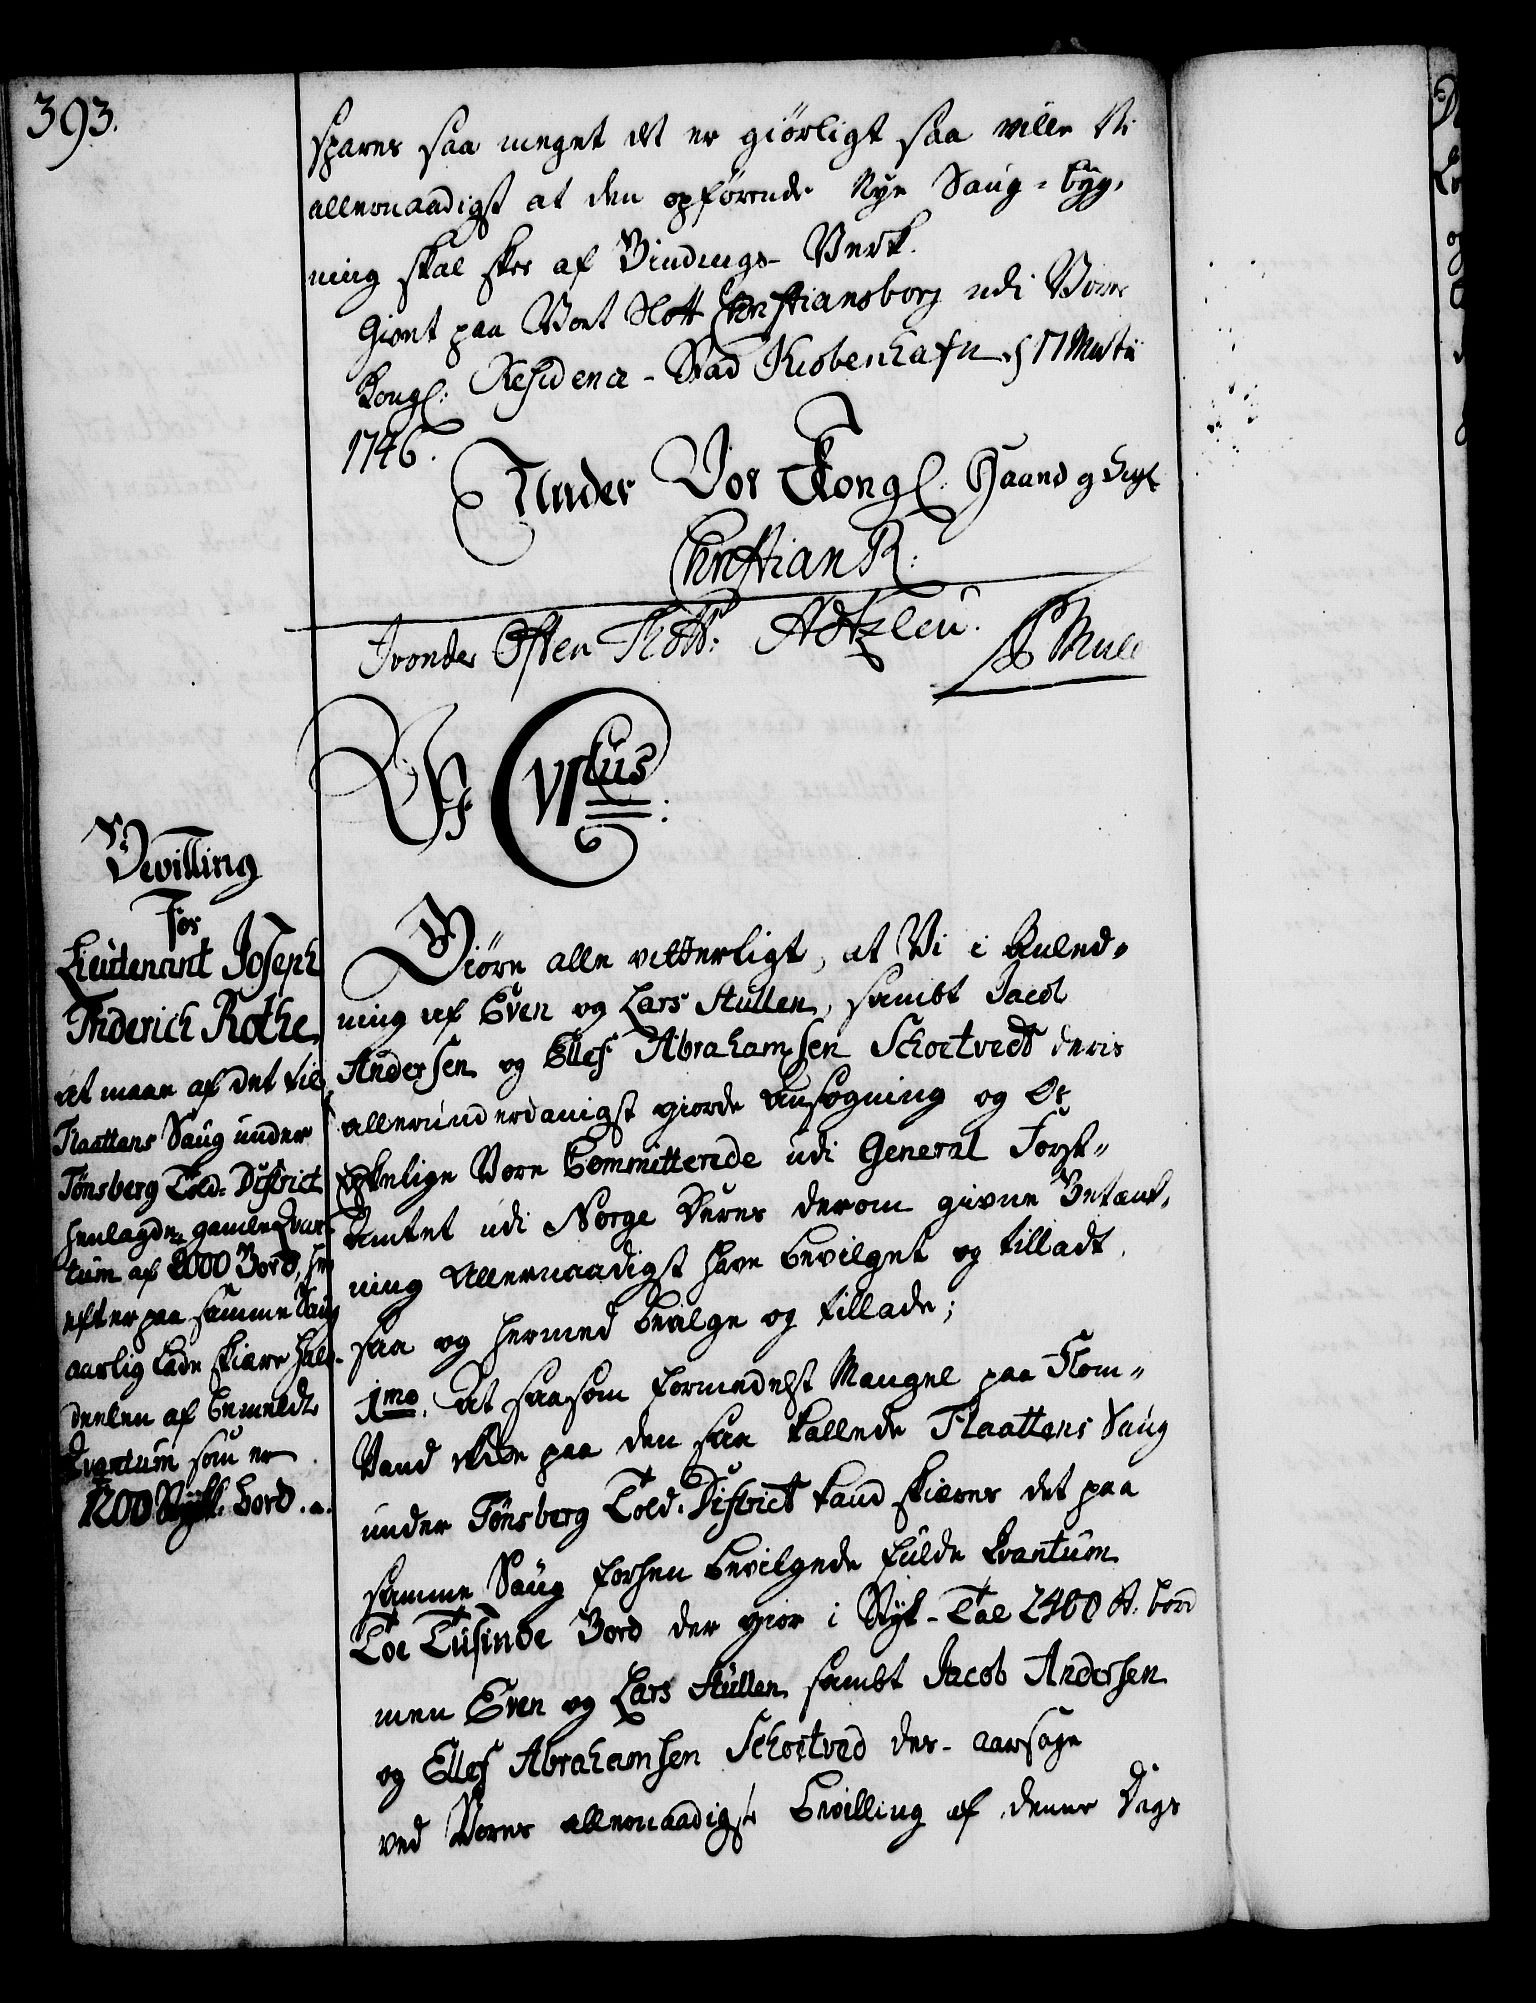 393.
spares saa meget det er giørligt saa ville Vi
allernaadigst at den opførende Nye Saug-byg,
ning skal skee af Bindings-Verk.
Givet paa Vort Slott Christiansborg udi Vores
Kongl: Residence-Stad Kiøbenhafn d 17 Martii
1746.
Under Vor Kongl. Haand og Segl
Christian R:
Ivonder Osten Thott: Holtzleu.
Mule
Vi C VItus:
Bevilling
For
Lieutenant Joseph
Friderich Rothe,
at maae af det til
Flaattens Saug under
Tønsberg Told-District
henlagde gamle Qvan-
tum af 2000 Bord, her
efter paa samme Saug
aarlig lade skiære halv-
deelen af bemeldte
Qvantum som er
1200 Stykk: bord.
Giøre alle vitterligt, at Vi i Anled-
ning af Even og Lars Stullen, sambt Jacob
Andersen og Ellef Abrahamsen Schoitvedt deris
allerunderdanigst giorde Ansøgning og Os
elskelige Vore Committerede udi General Forst-
Amtet udi Norge deres derom givne Betænk,
ning Allernaadigst have bevilget og tilladt,
saa og hermed bevilge og tillade;
1mo. At saasom formedelst Mangel paa Flom-
Vand ikke paa den saa kallede Flaattens Saug
under Tønsberg Told-District kand skiæres det paa
samme Saug forhen bevilgede fulde Qvantum
Toe Tusinde Bord der giør i Styk-Tal 2400 St. bord
men Even og Lars Stullen sambt Jacob Andersen
og Ellef Abrahamsen Schoitved der-aarsage
ved Vores allernaadigste Bevilling af denne Dags